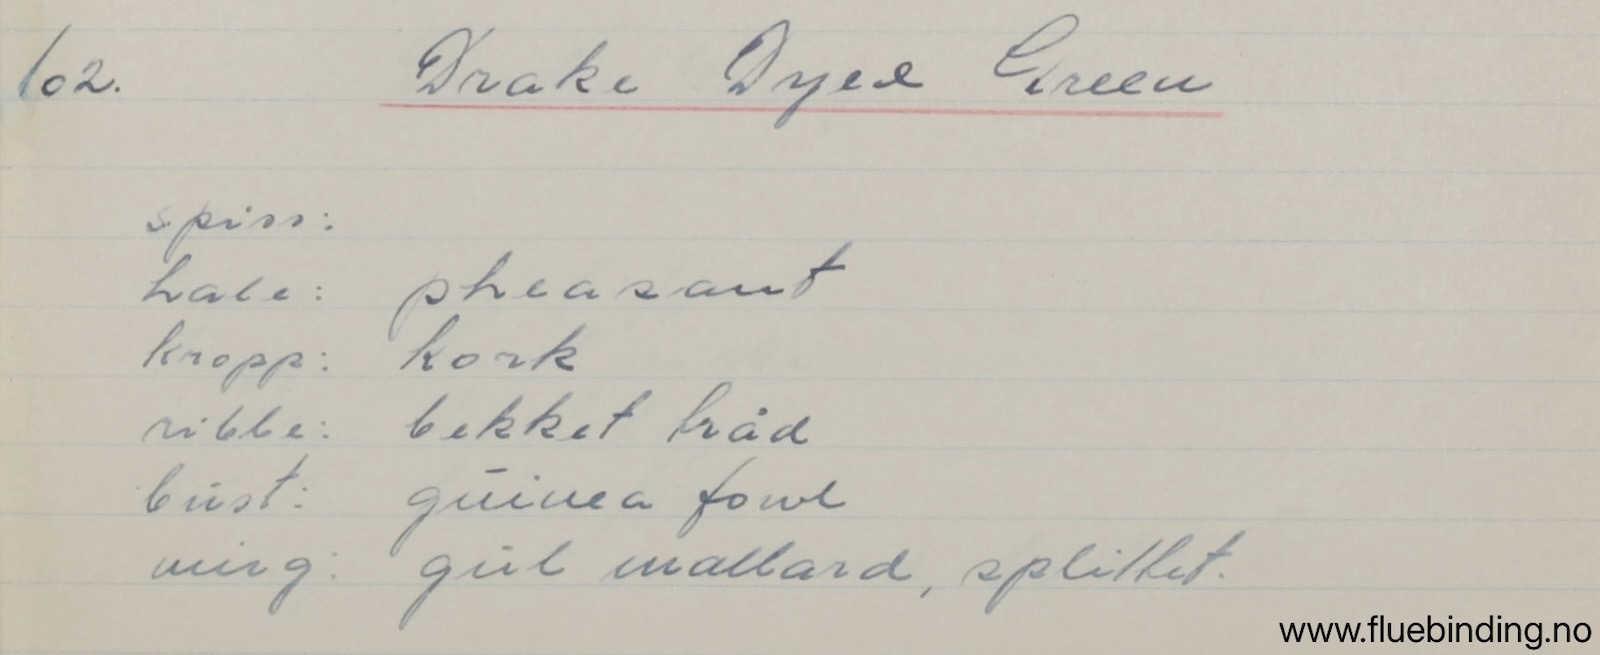 102. Drake Dyed Green
spiss:
hale: pheasant
kropp: kork
ribbe: bekket tråd
bust: guinea fowl
ving: gul mallard, splittet.
www.fluebinding.no